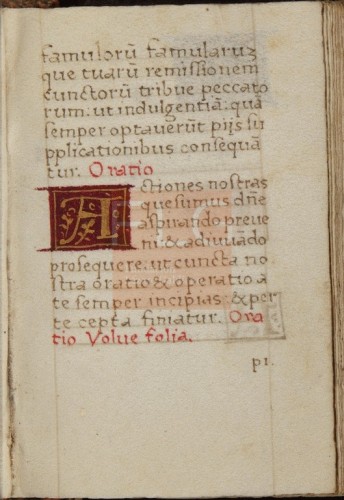 famulorū famularuꝫ
que tuarū remissionem
cunctorū tribue peccato
rum: ut indulgentiā: quā
semper optaverūt pijs su
pplicationibus consequā
tur. Oratio
Actiones nostras
quesumus dñe
aspirando preue
ni: & adiuuādo
prosequere: ut cuncta no
stra oratio & operatio a
te semper incipiat: & per
te cepta finiatur. Ora
tio Volue folia.
pı.